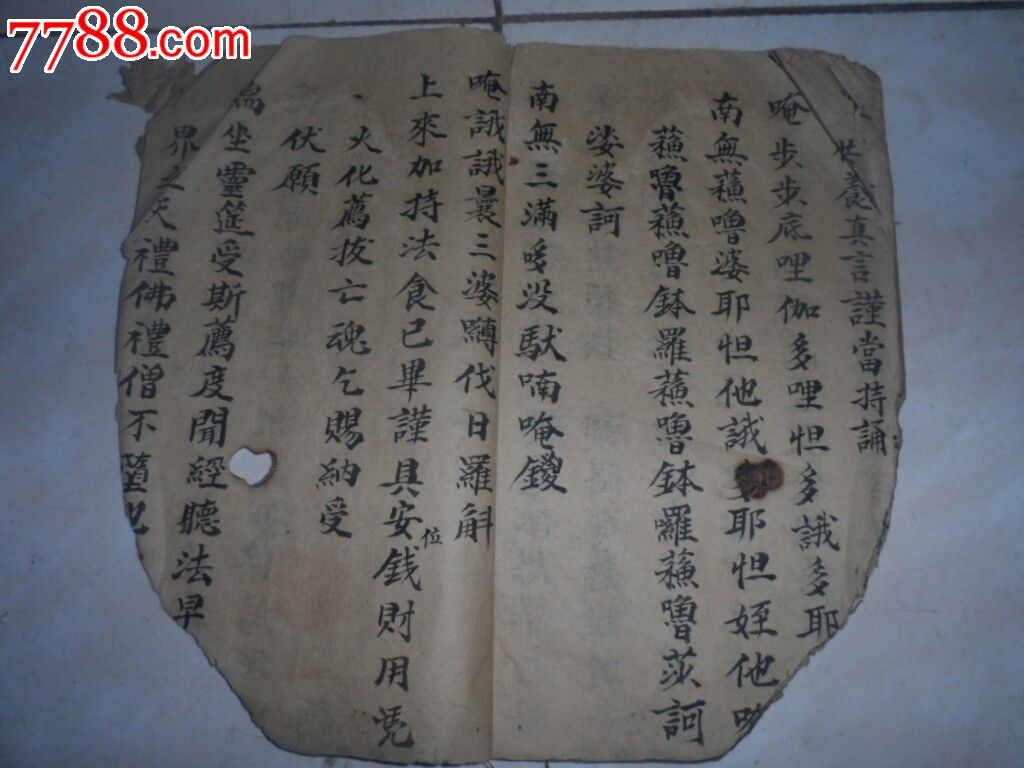 7788.com
養真言謹當持誦
唵步步底哩伽多哩怛多誐多耶
南無蘓嚕婆耶怛他誐多耶怛姪他唵
蘓嚕蘓嚕鉢囉蘓嚕鉢囉蘓嚕莎訶
娑婆訶
南無三滿哆没馱喃唵鑁
唵誐誐曩三婆嚩伐日羅斛
上來加持法食已畢謹具安位錢財用凭
火化薦拔亡魂乞賜納受
伏願
坐靈筵受斯薦度聞經聽法早
界之天禮佛禮僧不墮